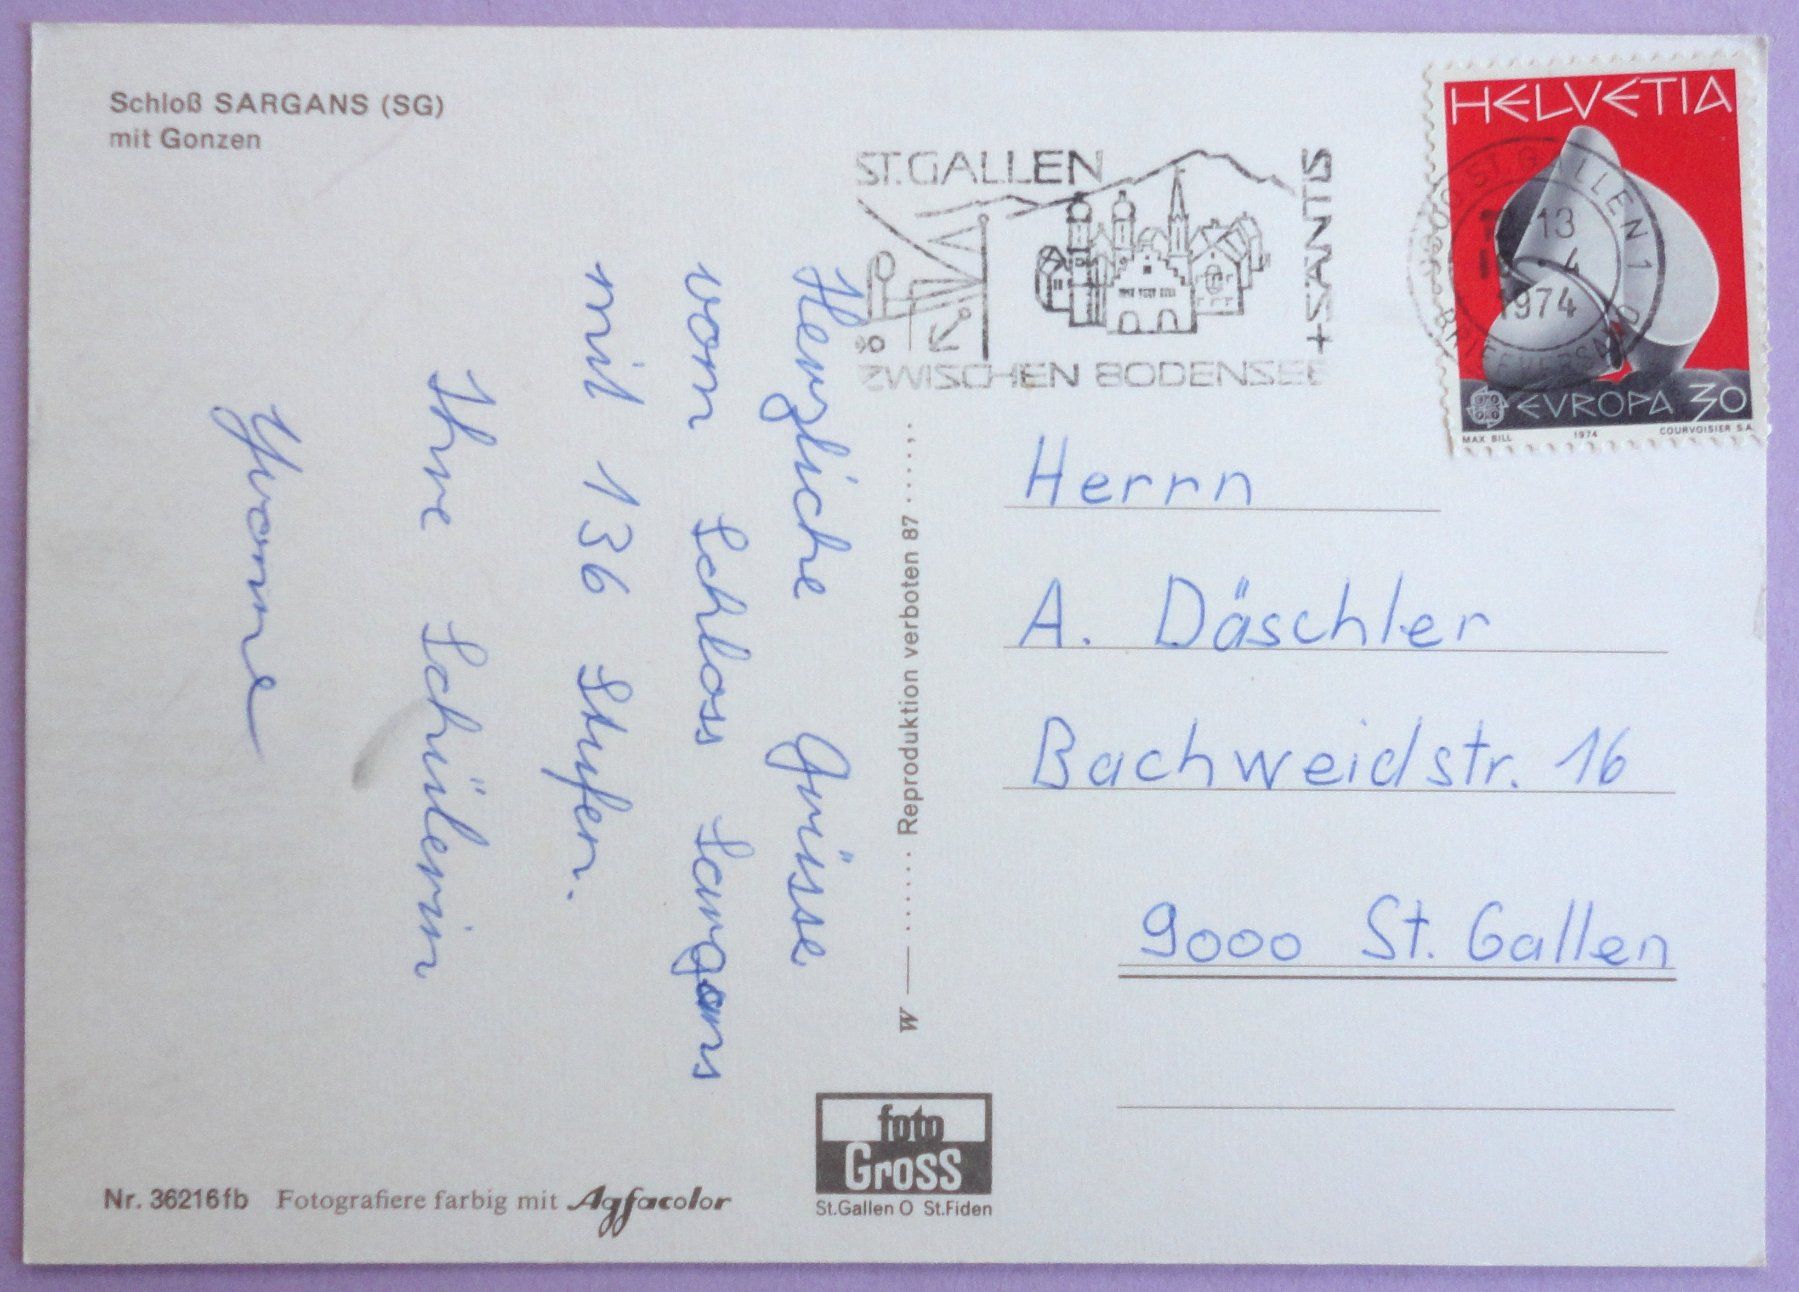 Schloß SARGANS (SG)
mit Gonzen
Herzliche Grüsse
vom Schloss Sargans
mit 136 Stufen.
Ihre Schülerin
Yvonne
W — Reproduktion verboten 87
ST. GALLEN
ZWISCHEN BODENSEE
+ SÄNTIS
HELVETIA
ST. GALLEN 1
13
4
1974
BRIEFVERSAND
EVROPA 30
MAX BILL 1974 COURVOISIER S.A.
Herrn
A. Däschler
Bachweidstr. 16
9000 St. Gallen
foto
GROSS
St.Gallen O St.Fiden
Nr. 36216fb Fotografiere farbig mit Agfacolor